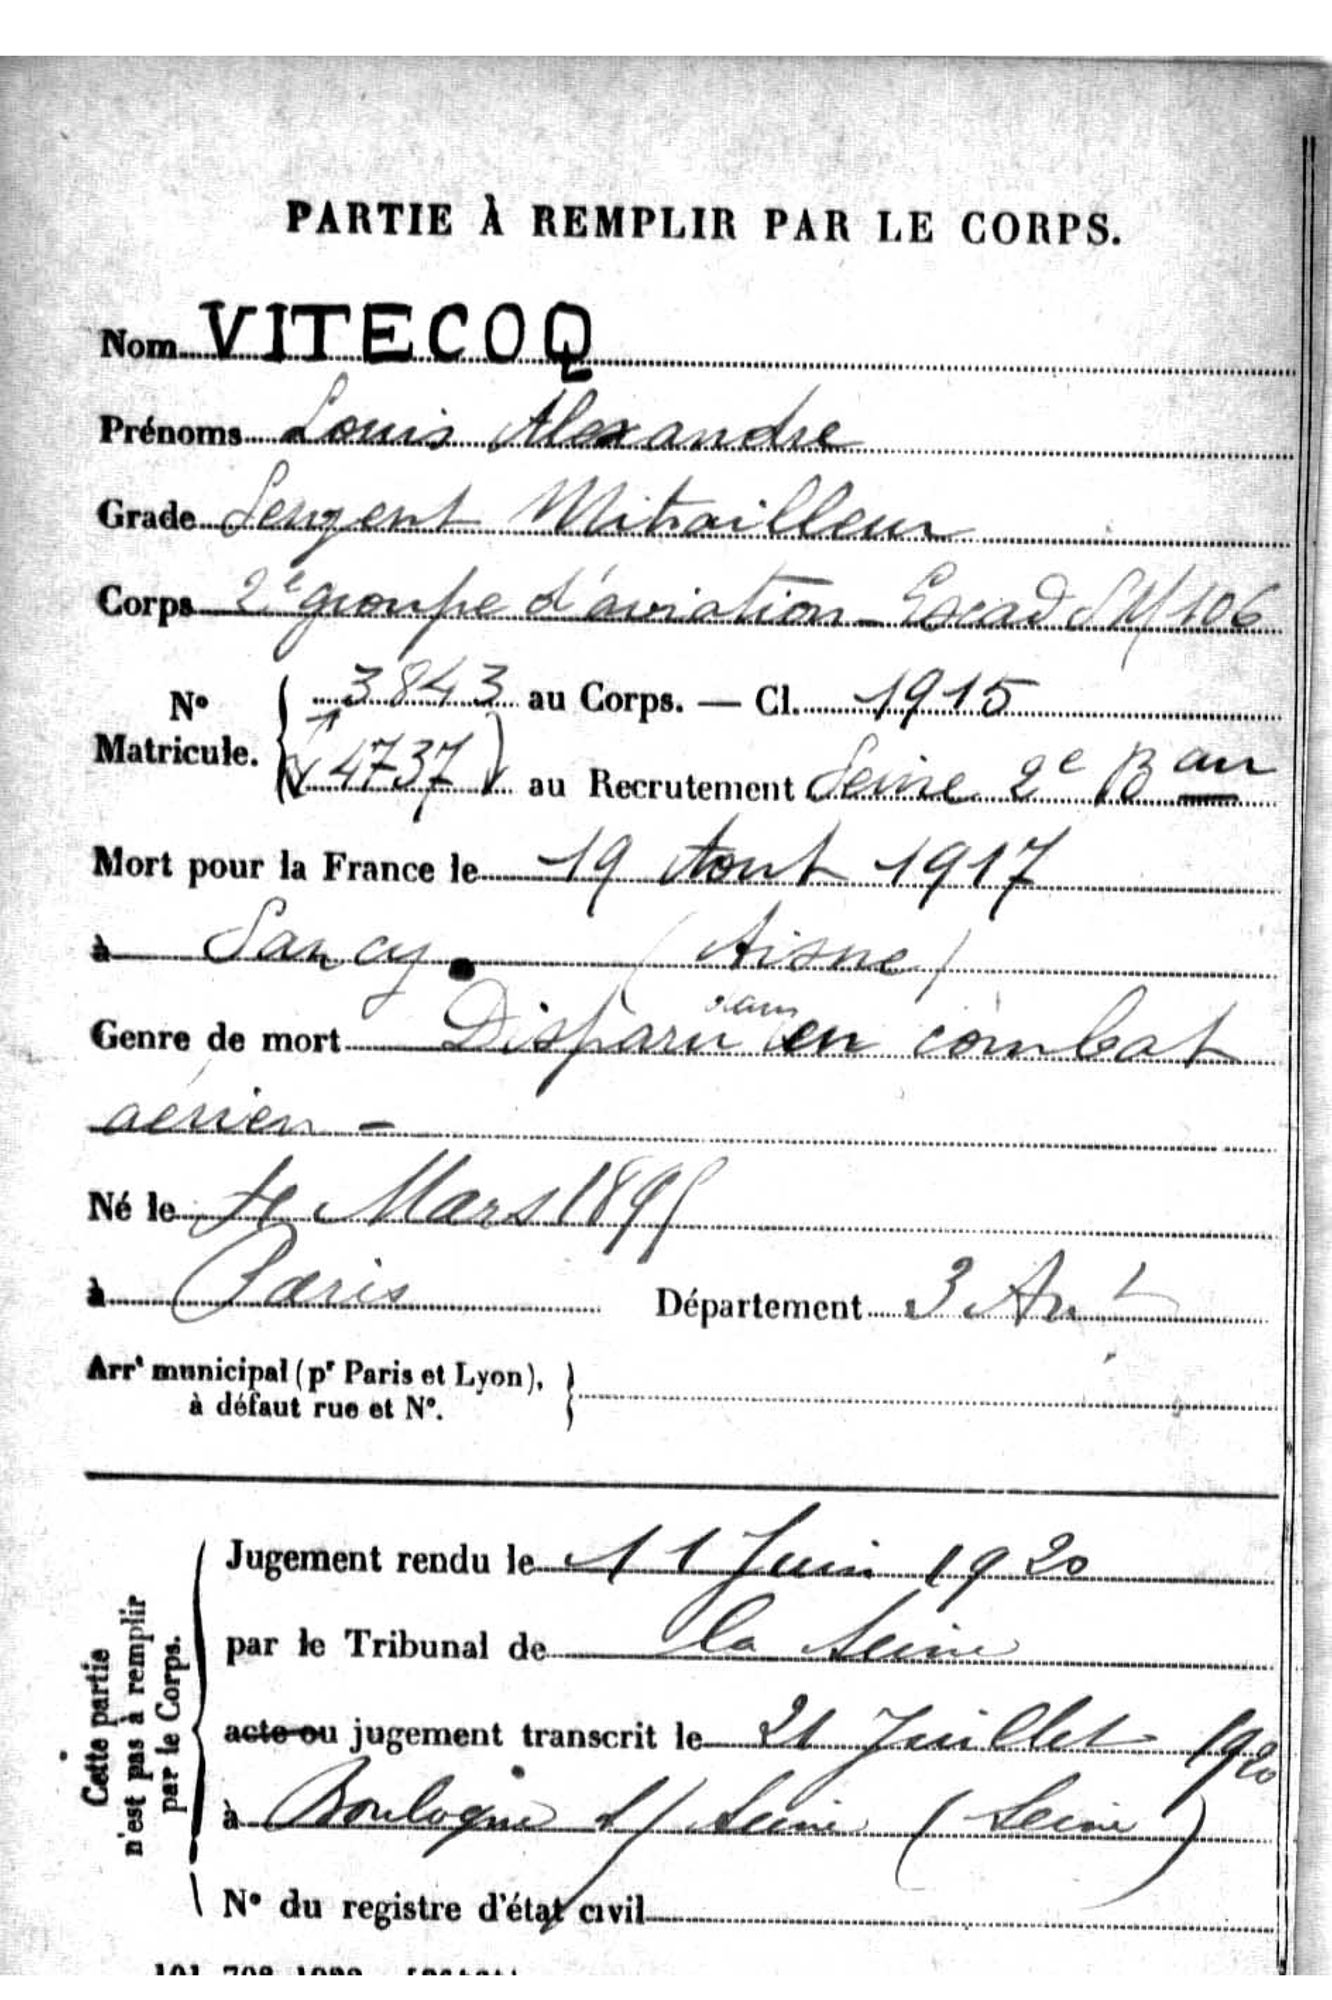 PARTIE À REMPLIR PAR LE CORPS.
Nom VITECOQ
Prénoms Louis Alexandre
Grade Sergent Mitrailleur
Corps 2e groupe d'aviation - Escad SM 106
No Matricule. { 3843 au Corps. — Cl. 1915
4737 au Recrutement Seine 2e Bau
Mort pour la France le 19 Aout 1917
à Sancy. (Aisne)
Genre de mort Disparu dans en combat
aérien -
Né le Mars 1895
à Paris Département 3 Arrt
Arrt municipal (pr Paris et Lyon), }
à défaut rue et No.
Cette partie
n'est pas à remplir
par le Corps.
Jugement rendu le 11 Juin 1920
par le Tribunal de la Seine
acte ou jugement transcrit le 21 Juillet 1920
à Boulogne s/ Seine (Seine)
No du registre d'état civil